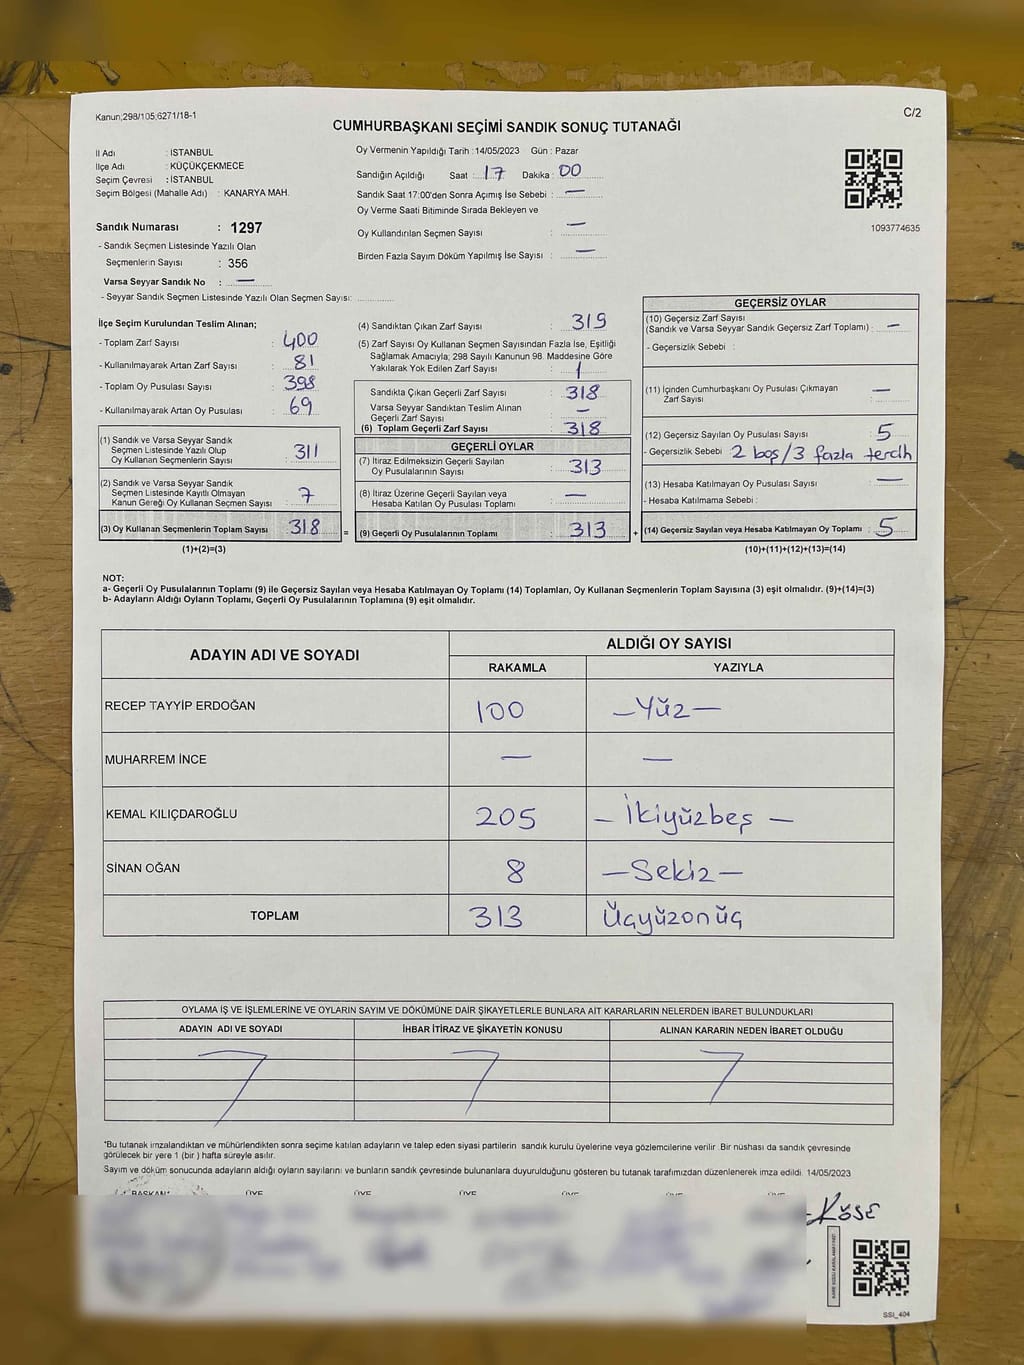 Kanun;298/105;6271/18-1
C/2
CUMHURBAŞKANI SEÇİMİ SANDIK SONUÇ TUTANAĞI
İl Adı : İSTANBUL
İlçe Adı : KÜÇÜKÇEKMECE
Seçim Çevresi : İSTANBUL
Seçim Bölgesi (Mahalle Adı) : KANARYA MAH.
Oy Vermenin Yapıldığı Tarih : 14/05/2023 Gün : Pazar
Sandığın Açıldığı Saat : 17 Dakika : 00
Sandık Saat 17:00'den Sonra Açımış İse Sebebi : —
Oy Verme Saati Bitiminde Sırada Bekleyen ve
Oy Kullandırılan Seçmen Sayısı : —
Birden Fazla Sayım Döküm Yapılmış İse Sayısı : —
1093774635
Sandık Numarası : 1297
- Sandık Seçmen Listesinde Yazılı Olan
Seçmenlerin Sayısı : 356
Varsa Seyyar Sandık No : —
- Seyyar Sandık Seçmen Listesinde Yazılı Olan Seçmen Sayısı:
İlçe Seçim Kurulundan Teslim Alınan;
- Toplam Zarf Sayısı : 400
- Kullanılmayarak Artan Zarf Sayısı : 81
- Toplam Oy Pusulası Sayısı : 398
- Kullanılmayarak Artan Oy Pusulası : 69
(1) Sandık ve Varsa Seyyar Sandık
Seçmen Listesinde Yazılı Olup
Oy Kullanan Seçmenlerin Sayısı : 311
(2) Sandık ve Varsa Seyyar Sandık
Seçmen Listesinde Kayıtlı Olmayan
Kanun Gereği Oy Kullanan Seçmen Sayısı : 7
(3) Oy Kullanan Seçmenlerin Toplam Sayısı : 318
(1)+(2)=(3)
(4) Sandıktan Çıkan Zarf Sayısı : 319
(5) Zarf Sayısı Oy Kullanan Seçmen Sayısından Fazla İse, Eşitliği
Sağlamak Amacıyla; 298 Sayılı Kanunun 98. Maddesine Göre
Yakılarak Yok Edilen Zarf Sayısı : 1
Sandıkta Çıkan Geçerli Zarf Sayısı : 318
Varsa Seyyar Sandıktan Teslim Alınan
Geçerli Zarf Sayısı : —
(6) Toplam Geçerli Zarf Sayısı : 318
GEÇERLİ OYLAR
(7) İtiraz Edilmeksizin Geçerli Sayılan
Oy Pusulalarının Sayısı : 313
(8) İtiraz Üzerine Geçerli Sayılan veya
Hesaba Katılan Oy Pusulası Toplamı : —
= (9) Geçerli Oy Pusulalarının Toplamı : 313
GEÇERSİZ OYLAR
(10) Geçersiz Zarf Sayısı
(Sandık ve Varsa Seyyar Sandık Geçersiz Zarf Toplamı) : —
- Geçersizlik Sebebi :
(11) İçinden Cumhurbaşkanı Oy Pusulası Çıkmayan
Zarf Sayısı : —
(12) Geçersiz Sayılan Oy Pusulası Sayısı : 5
- Geçersizlik Sebebi 2 boş/3 fazla tercih
(13) Hesaba Katılmayan Oy Pusulası Sayısı : —
- Hesaba Katılmama Sebebi :
+ (14) Geçersiz Sayılan veya Hesaba Katılmayan Oy Toplamı : 5
(10)+(11)+(12)+(13)=(14)
NOT:
a- Geçerli Oy Pusulalarının Toplamı (9) ile Geçersiz Sayılan veya Hesaba Katılmayan Oy Toplamı (14) Toplamları, Oy Kullanan Seçmenlerin Toplam Sayısına (3) eşit olmalıdır. (9)+(14)=(3)
b- Adayların Aldığı Oyların Toplamı, Geçerli Oy Pusulalarının Toplamına (9) eşit olmalıdır.
ADAYIN ADI VE SOYADI
ALDIĞI OY SAYISI
RAKAMLA YAZIYLA
RECEP TAYYİP ERDOĞAN 100 —Yüz—
MUHARREM İNCE — —
KEMAL KILIÇDAROĞLU 205 — İkiyüzbeş —
SİNAN OĞAN 8 —Sekiz—
TOPLAM 313 Üçyüzonüç
OYLAMA İŞ VE İŞLEMLERİNE VE OYLARIN SAYIM VE DÖKÜMÜNE DAİR ŞİKAYETLERLE BUNLARA AİT KARARLARIN NELERDEN İBARET BULUNDUKLARI
ADAYIN ADI VE SOYADI İHBAR İTİRAZ VE ŞİKAYETİN KONUSU ALINAN KARARIN NEDEN İBARET OLDUĞU
*Bu tutanak imzalandıktan ve mühürlendikten sonra seçime katılan adayların ve talep eden siyasi partilerin sandık kurulu üyelerine veya gözlemcilerine verilir. Bir nüshası da sandık çevresinde
görülecek bir yere 1 (bir ) hafta süreyle asılır.
Sayım ve döküm sonucunda adayların aldığı oyların sayılarını ve bunların sandık çevresinde bulunanlara duyurulduğunu gösteren bu tutanak tarafımızdan düzenlenerek imza edildi. 14/05/2023
BAŞKAN ÜYE ÜYE ÜYE ÜYE ÜYE ÜYE
KÖSE
SSI_404